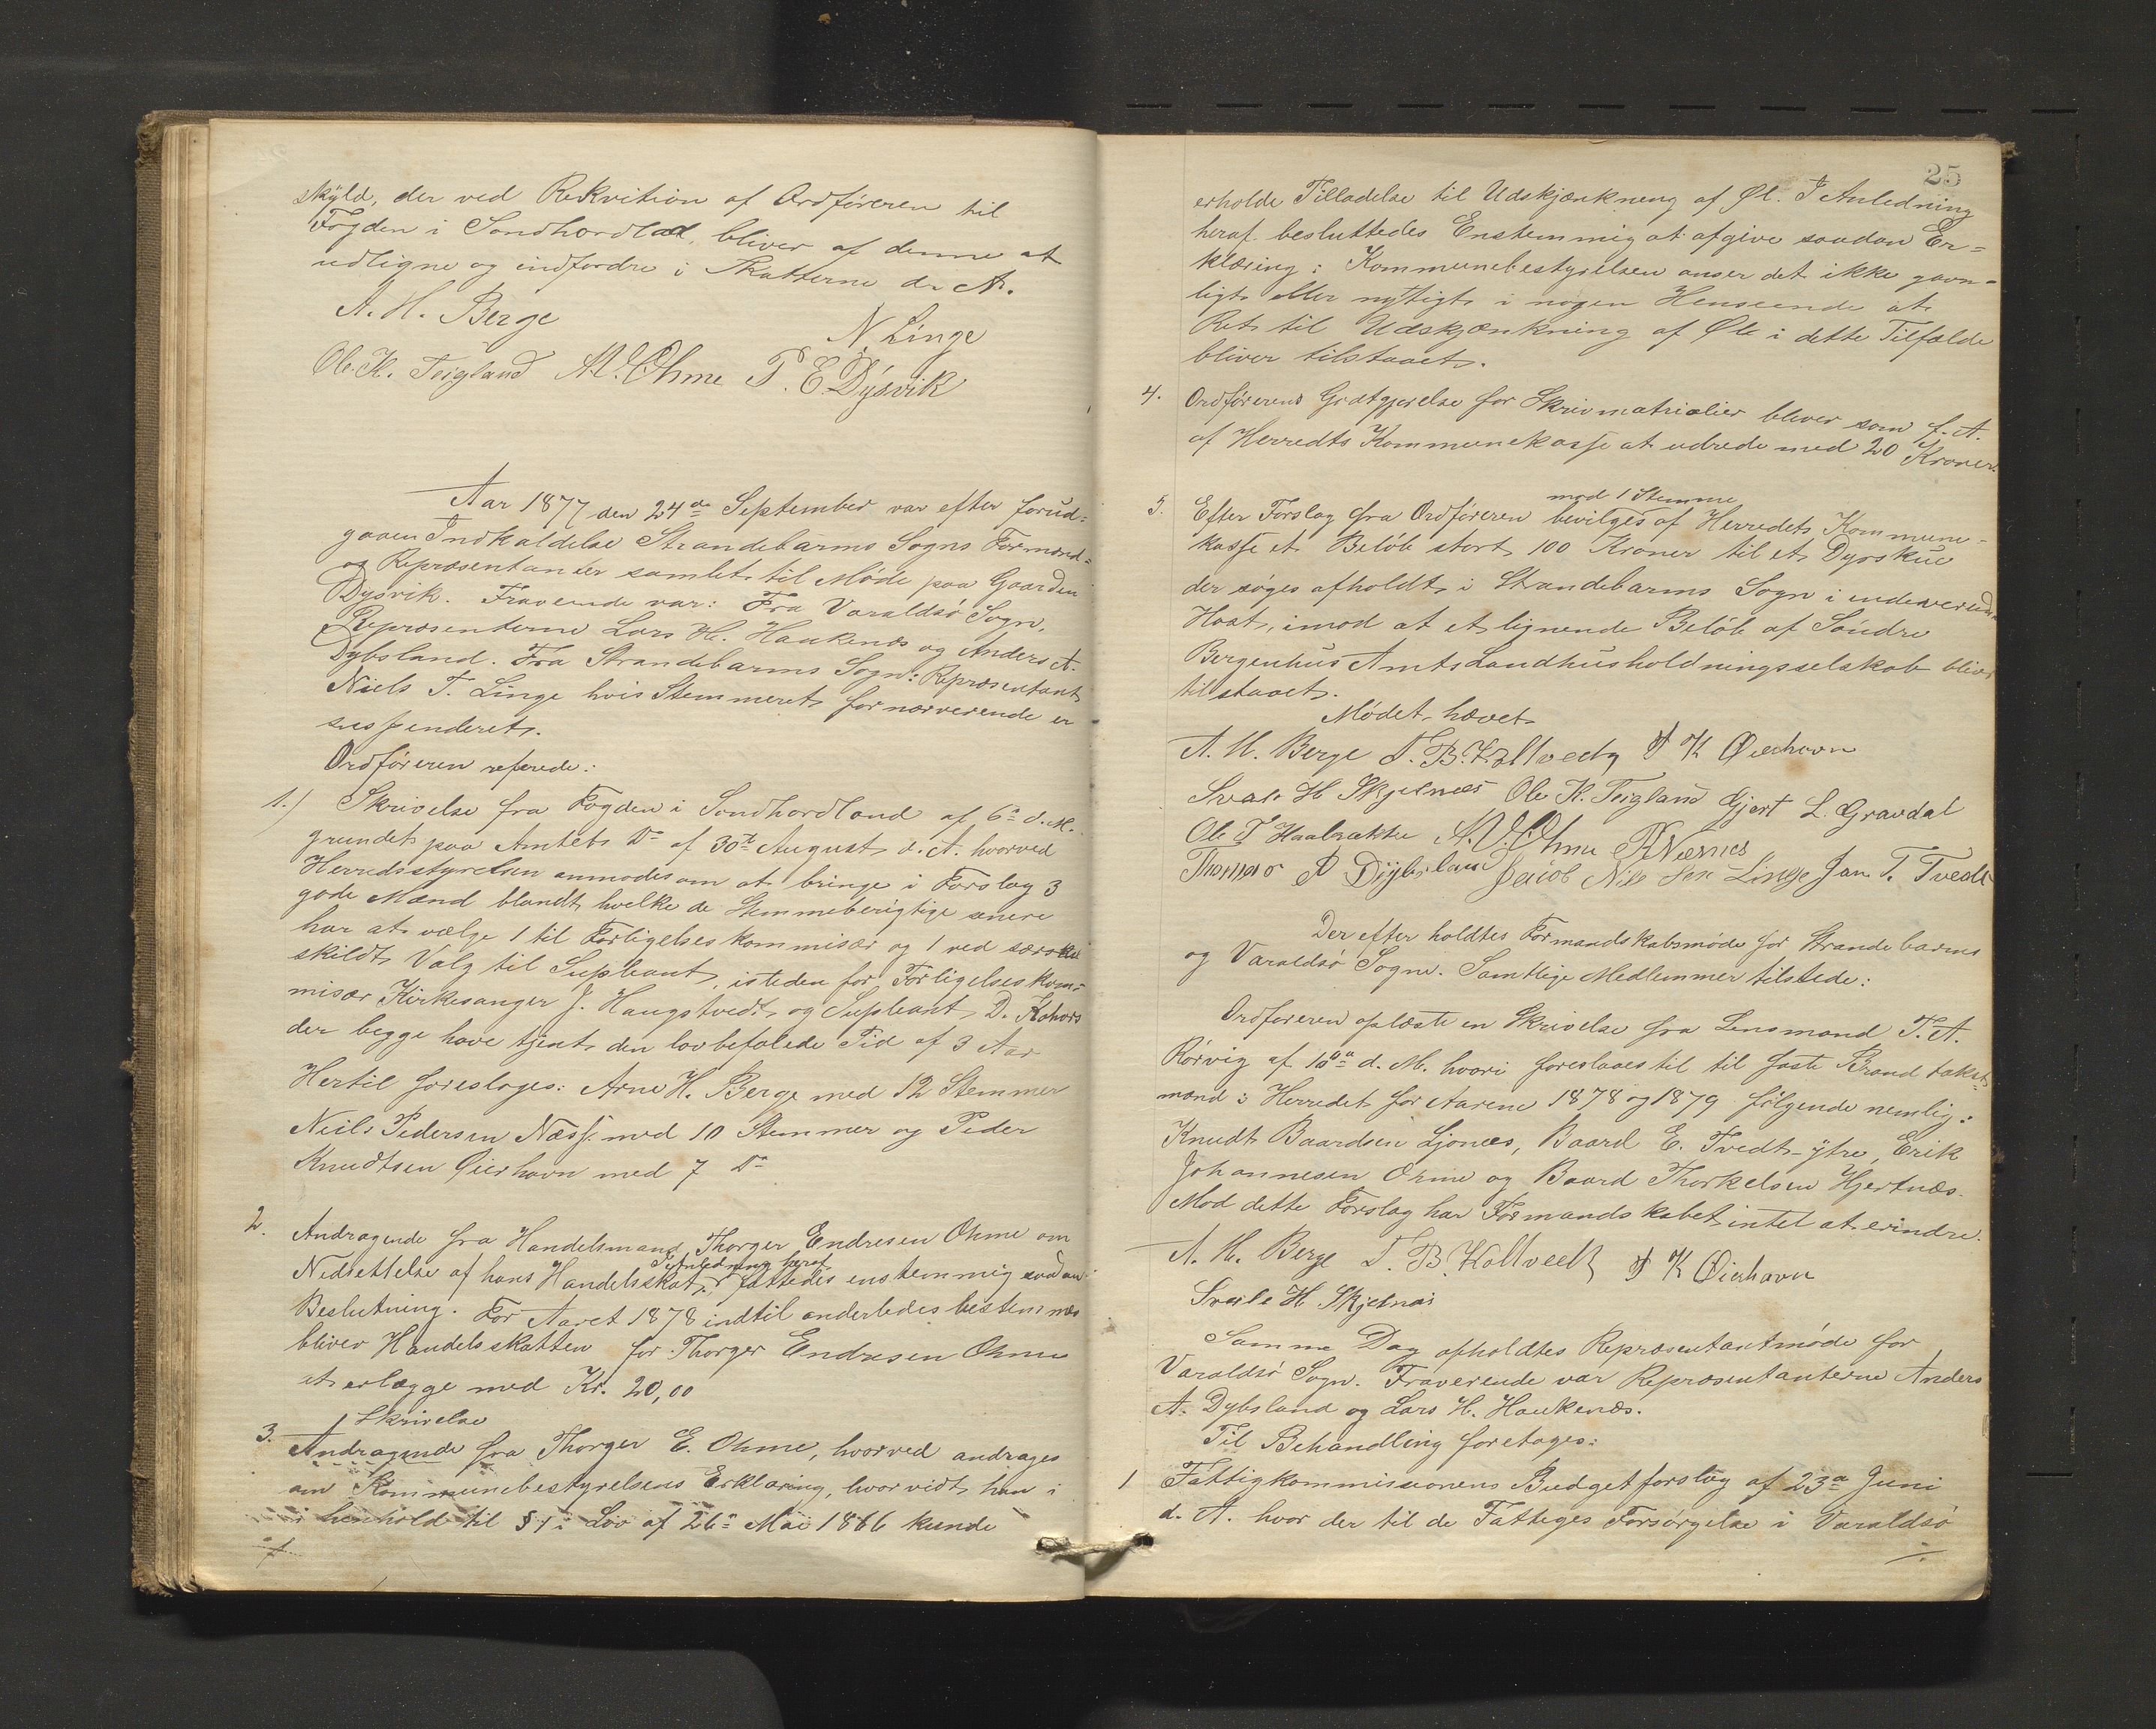 skyld, der ved Rekvition af Ordføreren til
Fogden i Sondhordlad, bliver af denne at
udligne og indfordre i Skatterne d. A.
A. H. Berge
N. Linge
Ole K. Teigland A. O. Ohme P. E. Dysvik
Aar 1877 den 24de September var efter forud-
gaaen Indkaldelse Strandebarms Sogns Formænd-
og Repræsentanter samlet til Møde paa Gaarden
Dysvik. Fraværende var: Fra Varaldsø Sogn,
Repræsenterne Lars H. Haukenæs og Anders A.
Dybsland. Fra Strandebarms Sogn: Repræsentant
Niels T. Linge hvis Stemmeret for nærværende er
suspenderet.
Ordføreren referede:
1.) Skrivelse fra Fogden i Sondhordland af 6te d. M.
grundet paa Amtets Do af 30te August d. A. hvorved
Herredsstyrelsen anmodes om at bringe i Forslag 3
gode Mænd blandt hvelke de Stemmeberigtige senere
har at vælge 1 til Forligelseskommisær og 1 ved særs
skildt Valg til Supleant, isteden for Forligelseskom-
misær Kirkesanger J. Haugstvedt og Supleant D.
der begge have tjent den lovbefalede Tid af 3 Aar
Hertil foresloges: Arne H. Berge med 12 Stemmer
Neils Pedersen Næss med 10 Stemmer og Peder
Knudtsen Øierhavn med 7 Do
2. Andragende fra Handelsmand Thorger Endresen Ohme om
I Anledning heraf
Nedsettelse af hans Handelsskat, fattedes enstemmig saadan
Beslutning. For Aaret 1878 indtil anderledes bestemmes
bliver Handelsskatten for Thorger Endresen Ohme
at erlægge med Kr. 20,00
Skrivelse
3. Andragende fra Thorger E. Ohme, hvorved andrages
om Kommunebestyrelsens Erklæring, hvorvidt han i
henhold til § 1 i Lov af 26de Mai 1866 kunde
25
erholde Tilladelse til Udskjænkneng af Øl. I Anledning
heraf besluttedes Enstemmig at afgive saadan Er=
klæring: Kommunebestyrelsen anser det ikke gavn-
ligt eller nyttigt i nogen Henseende at
Ret til Udskjænkning af Øl i dette Tilfælde
bliver tilstaaet.
4. Ordførerens Godtgjørelse for Skrivmatrialier bliver som f. A.
af Herredts Kommunekasse at udrede med 20 Kroner.
mod 1 Stemme
5. Efter Forslag fra Ordføreren bevilges af Herredets Kommune-
kasse et Beløb stort 100 Kroner til et Dyrskue
der søges afholdt i Strandebarms Sogn i indeværende
Høst, imod at et lignende Beløb af Søndre
Bergenhus Amts Landhusholdningsselskab bliver
tilstaaet.
Mødet hævet
A. H. Berge T. B. Koltvedt P K Øierhavn
Svale H Skjelnæs Ole K. Teigland Gjert L. Gravdal
Ole T Haabrække A. O. Ohme P. Næsnes
Thomas A Dybsland Jacob Nils Sen Linge Jan T. Tvedt
Der efter holdtes Formandskabsmøde for Strandebarms
og Varaldsø Sogne. Samtlige Medlemmer tilstede:
Ordføreren oplæste en Skrivelse fra Lensmand T. A.
Rørvig af 10de d. M. hvori foreslaaes til til faste Brandtakst-
mænd i Herredet for Aarene 1878 og 1879 følgende nemlig:
Knudt Baardsen Ljones, Baard E. Tvedt-ytre, Erik
Johannesen Ohme og Baard Thorkelsen Hjertnæs.
Mod dette Forslag har Formandskabet intet at erindre.
A. H. Berge T. B. Koltvedt P K Øierhavn
Svale H Skjelnæs
Samme Dag afholdtes Repræsentantmøde for
Varaldsø Sogn. Fraværende var Repræsentanterne Anders
A. Dybsland og Lars H. Haukenæs.
Til Behandling foretages:
1 Fattigkommissionens Budgetforslag af 23de Juni
d. A. hvor der til de Fattiges Forsørgelse i Varaldsø